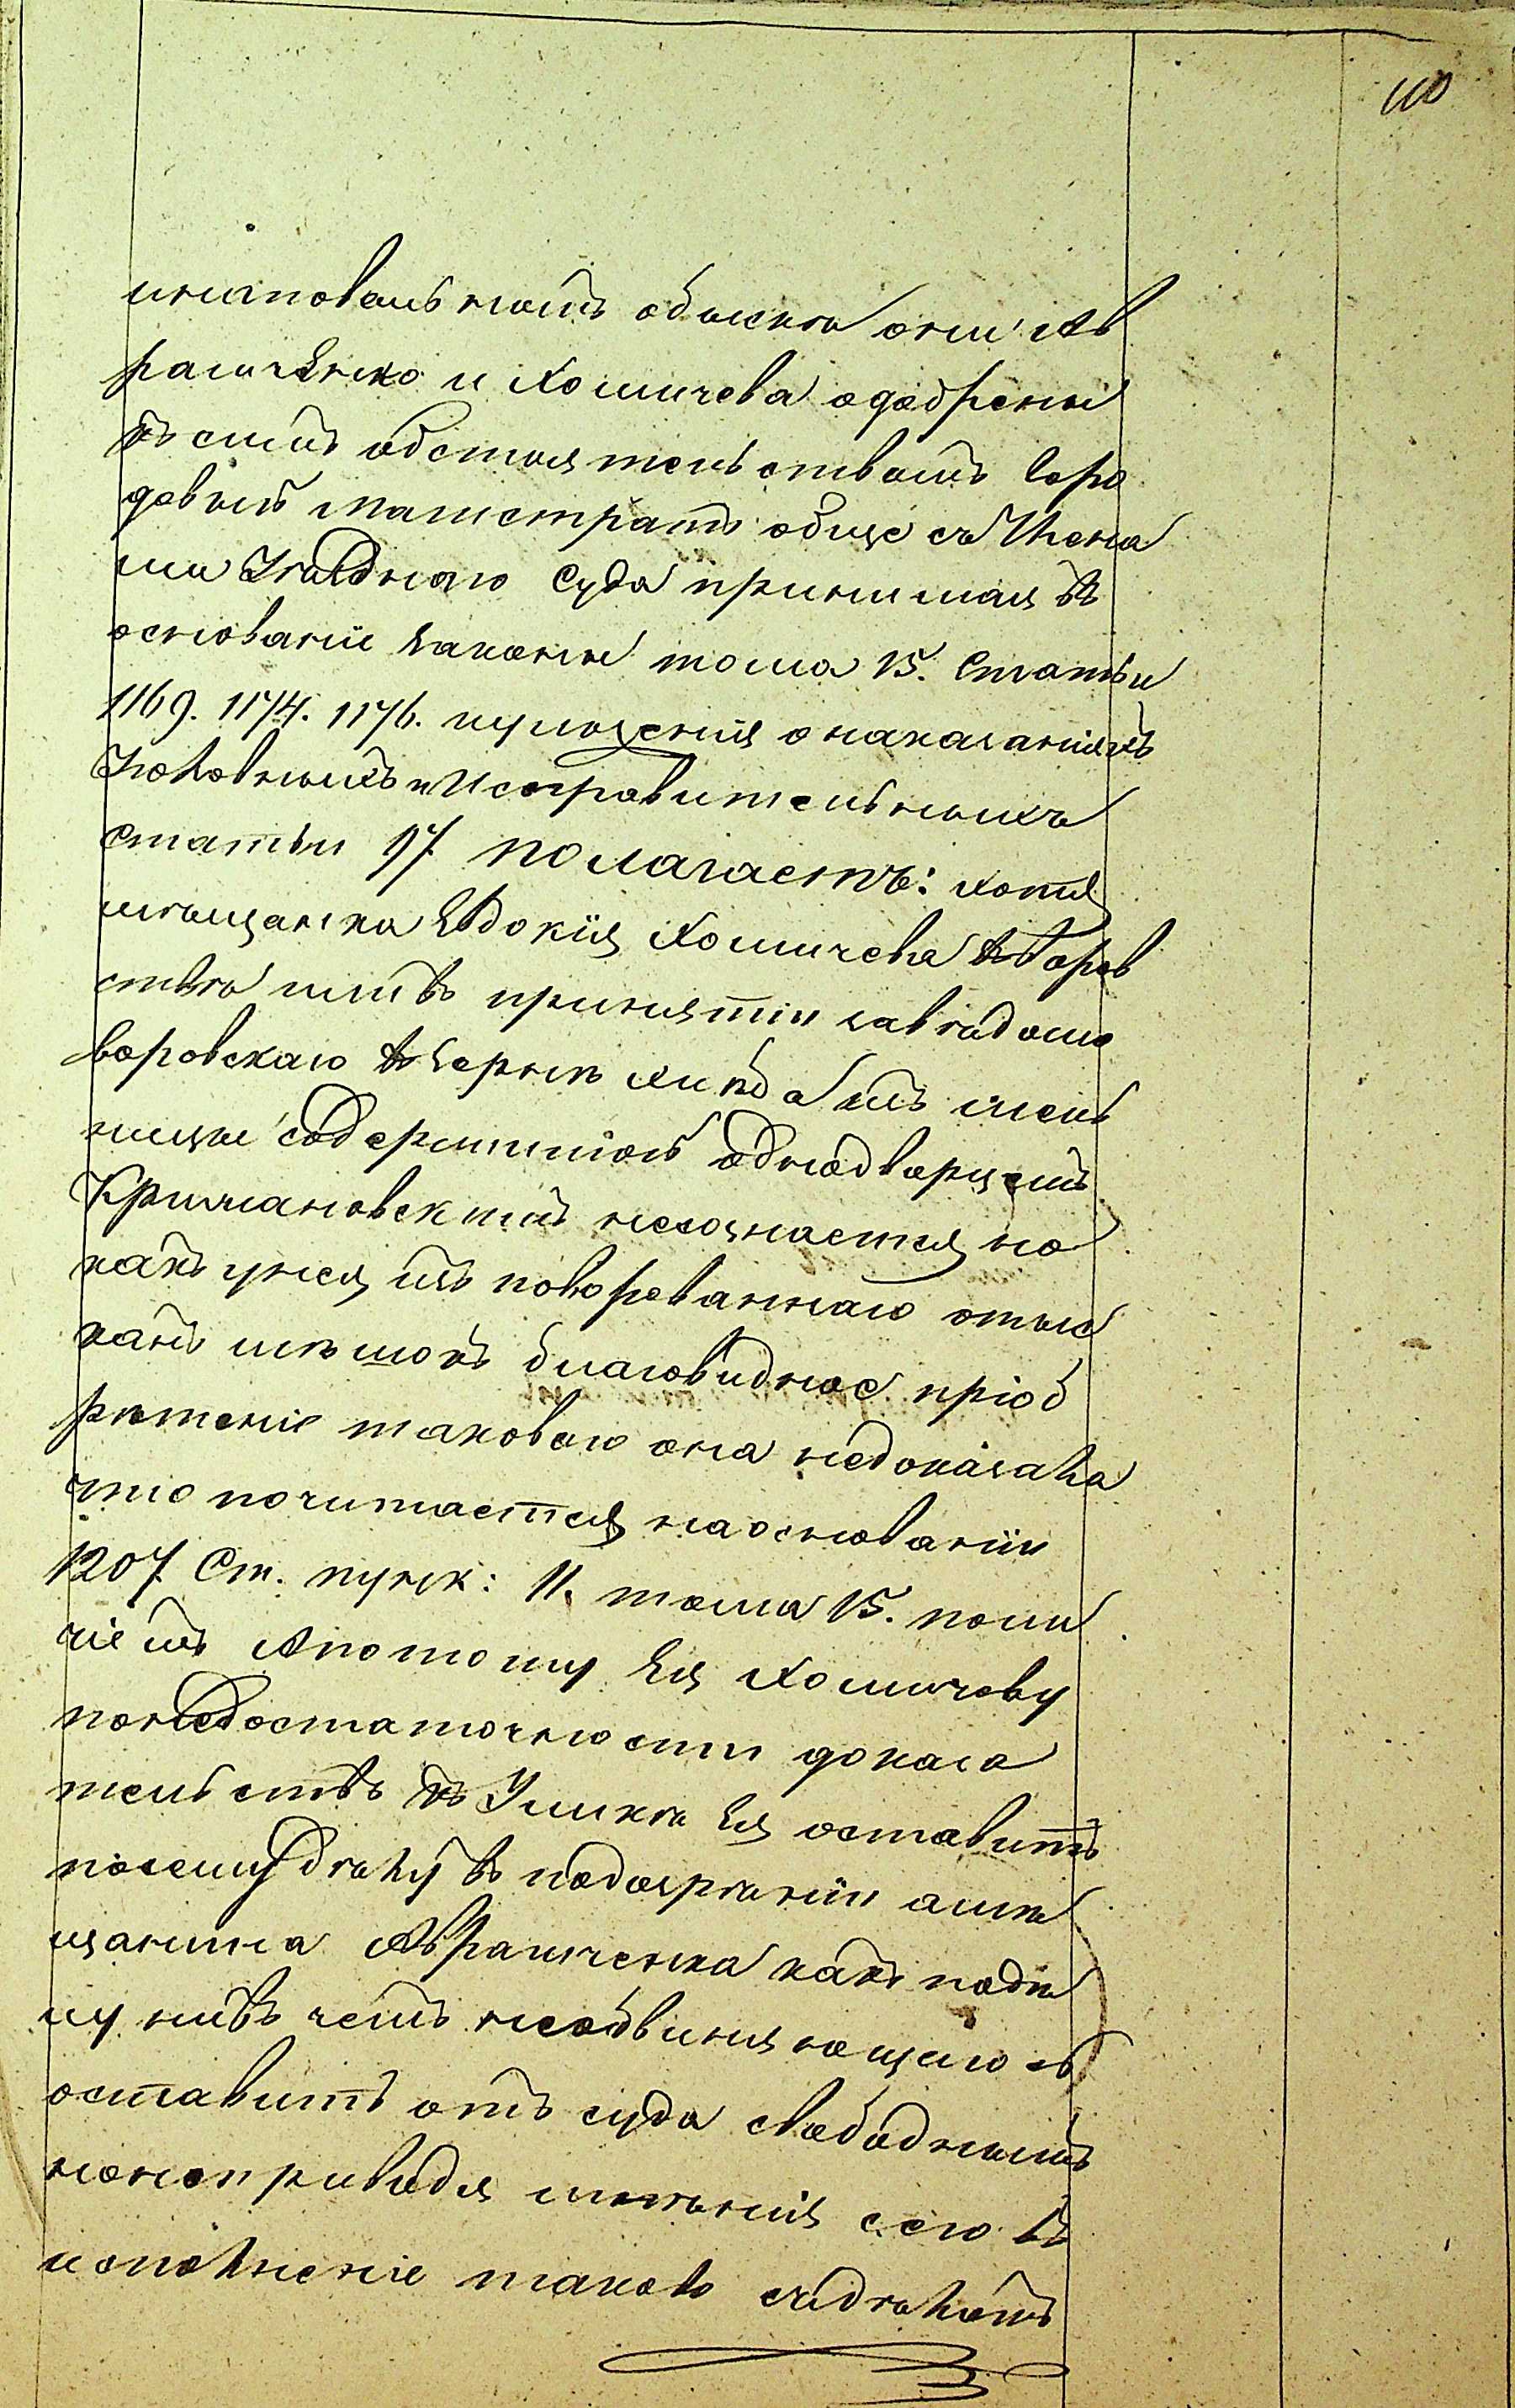 110
повальномъ обыскѣ они Ав
раменко и Хомичева одобрены
къ симъ обстоятельствамъ Горо
довый Магистратъ обще съ Члена
ми Уѣзднаго Суда принимая въ
основаніе законы тома 15. Статьи
1169. 1174. 1176. иуложенія о наказаніяхъ
Уголовныхъ и Исправительныхъ
Статьи 97 полагаетъ: хотя
мѣщанка Евдокія Хомичева въ воров
ствѣ или въ принятіи завѣдомо
воровскаго въ зернѣ хлѣба изъ мель
ницы содержимой однодворцемъ
Кришановскимъ несознается но
какъ унея изъ поворованнаго отыс
канъ мѣшокъ благовидное пріоб
рѣтеніе таковаго она недоказала
что почитается на основаніи
1207 Ст. пунк: 11. тома 15. поли
чіемъ Апотому Ея Хомичеву
по недостаточности доказа
тельствъ къ Уликѣ Ея оставить
посему дѣлу въ подозрѣніи амѣ
щанина Авраменка какъ по дѣ
лу нивъ чемъ необвиняющагось
оставить отъ суда свободнымъ
но неприводя мнѣнія сего въ
исполненіе таково съ дѣломъ